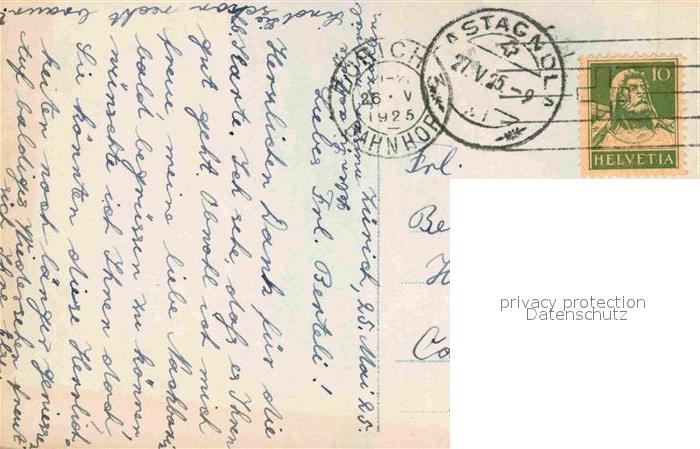 Zürich, 25. Mai 25.
Liebes Frl. Berteli!
Herzlichen Dank für die
Karte. Ich sehe, dass es Ihnen
gut geht. Obwohl ich mich
freu, meine liebe Nachbarin
bald begrüssen zu können
wünschte ich Ihnen doch
Sie könnten diese Herrlich-
keiten noch länger geniessen
Auf baldiges Wiedersehen freut
sich Ihre
Sind
schon recht braun?
ZÜRICH
26 · V
1925
BAHNHOF
CASTAGNOLA
27.V.25.–9
10
HELVETIA
Frl.
Be
H
Ca
privacy protection
Datenschutz